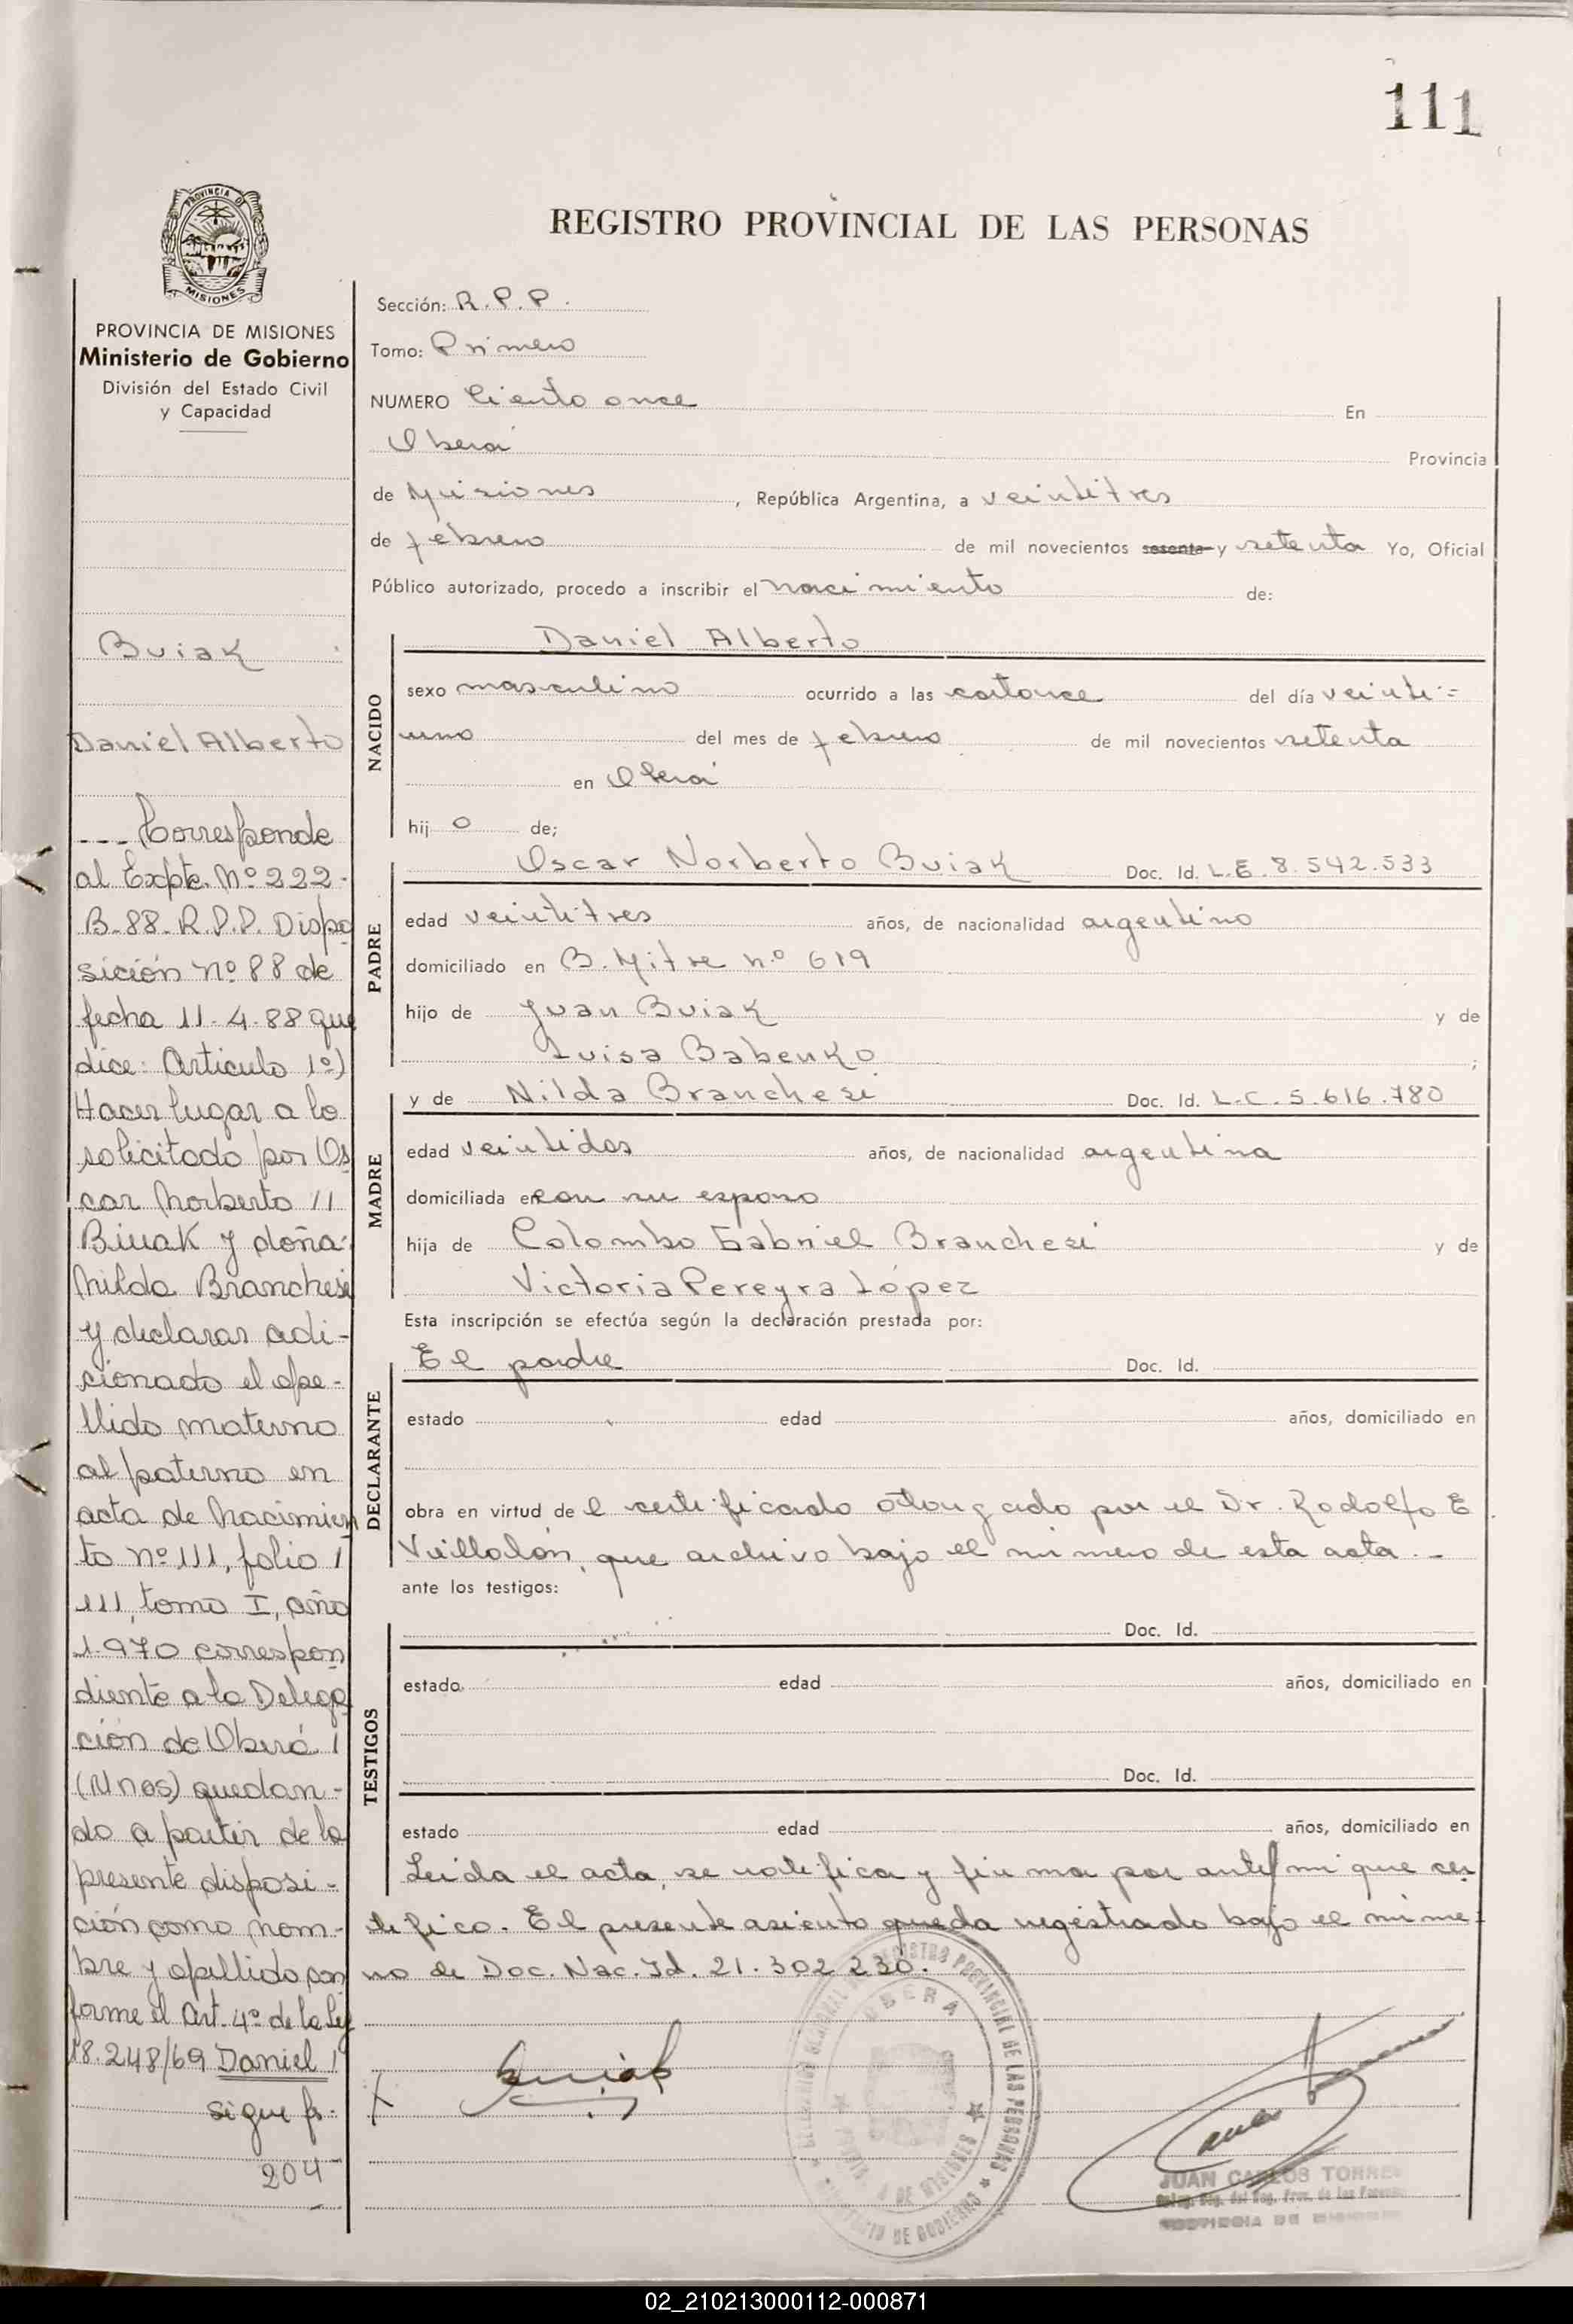 111
REGISTRO PROVINCIAL DE LAS PERSONAS
PROVINCIA DE
MISIONES
PROVINCIA DE MISIONES
Ministerio de Gobierno
División del Estado Civil
y Capacidad
Buiak
Daniel Alberto
--- Corresponde
al Expte. Nº 222-
B-88-R.P.P. Dispo
sición nº 88 de
fecha 11-4-88 que
dice: Articulo 1º)
Hacer lugar a lo
solicitado por Os
car Norberto //
Biuak y doña:
Nilda Branchesi
y declarar adi-
cionado el ape-
llido materno
al paterno en
acta de Nacimien
to nº 111, folio /
111, tomo I, año
1.970 correspon
diente a la Delega
ción de Oberá /
(Mnes) quedan-
do a partir de la
presente disposi-
ción como nom-
bre y apellido con
forme el Art. 4º de la Ley
18.248/69 Daniel /
sigue fs:
204
Sección: R.P.P.
Tomo: Primero
NUMERO Ciento once En
Oberá Provincia
de Misiones, República Argentina, a veintitres
de febrero de mil novecientos sesenta y setenta Yo, Oficial
Público autorizado, procedo a inscribir el nacimiento de:
NACIDO
Daniel Alberto
sexo masculino ocurrido a las catorce del día veinti-
uno del mes de febrero de mil novecientos setenta
en Oberá
hij o de;
PADRE
Oscar Norberto Buiak Doc. Id. L.E. 8.542.533
edad veintitres años, de nacionalidad argentino
domiciliado en B. Mitre n.º 619
hijo de Juan Buiak y de
Luisa Babenko ;
MADRE
y de Nilda Branchesi Doc. Id. L.C. 5.616.780
edad veintidos años, de nacionalidad argentina
domiciliada en con su esposo
hija de Colombo Gabriel Branchesi y de
Victoria Pereyra López
Esta inscripción se efectúa según la declaración prestada por:
DECLARANTE
El padre Doc. Id.
estado edad años, domiciliado en
obra en virtud de l certificado otorgado por el Dr. Rodolfo E
Vuillolón, que archivo bajo el numero de esta acta.-
ante los testigos:
TESTIGOS
Doc. Id.
estado edad años, domiciliado en
Doc. Id.
estado edad años, domiciliado en
Leida el acta, se notifica y firma por ante mi que cer
tifico. El presente asiento queda registrado bajo el nume-
ro de Doc. Nac. Id. 21.302.230.
REGISTRO PROVINCIAL DE LAS PERSONAS
OBERA
MINISTERIO DE GOBIERNO
Buiak
JUAN CARLOS TORRES
PROVINCIA DE MISIONES
02_210213000112-000871